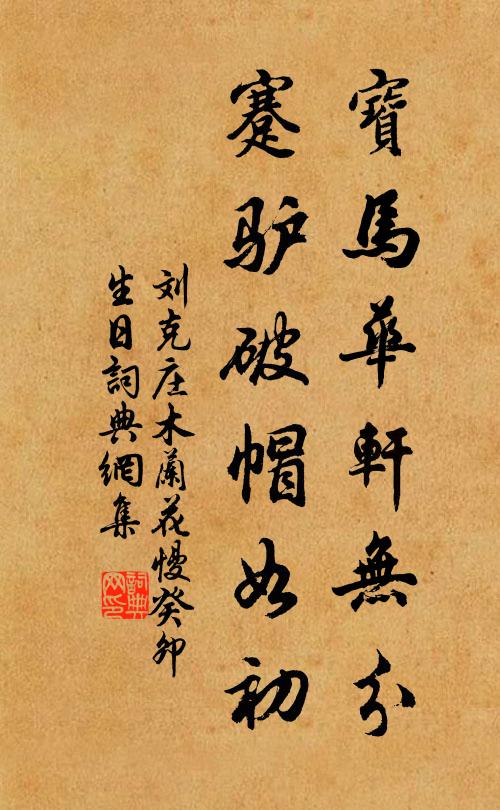 寶馬華軒無分
蹇驴破帽如初
刘克庄木蘭花慢癸卯
生日詞典網集
詞典
网印